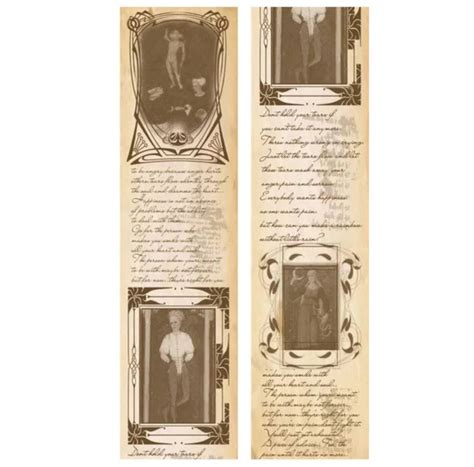 to be angry, because anger hurts
others tears flow silently, through
the soul and cleanse the heart.
Happiness is not an absence
of problems but the ability
to deal with them.
Go for the person who
makes you smile with
all your heart and soul.
The person you're meant
to be with may be not forever
but for now, they're right for you
Dont hold your tears if
Dont hold your tears if
you can't take it any more.
There's nothing wrong in crying.
Just let the tears flow and let
those tears wash away your
anger, pain and sorrow.
Everybody wants happiness
no one wants pain.
but how can you make a rainbow
without little rain?
makes you smile with
all your heart and soul.
The person you're meant
to be with may be not forever
but for now, they're right for you
when you're in pain don't fight it.
You'll just get exhausted.
A piece of advice. Feel the
pain until it hurts no more.